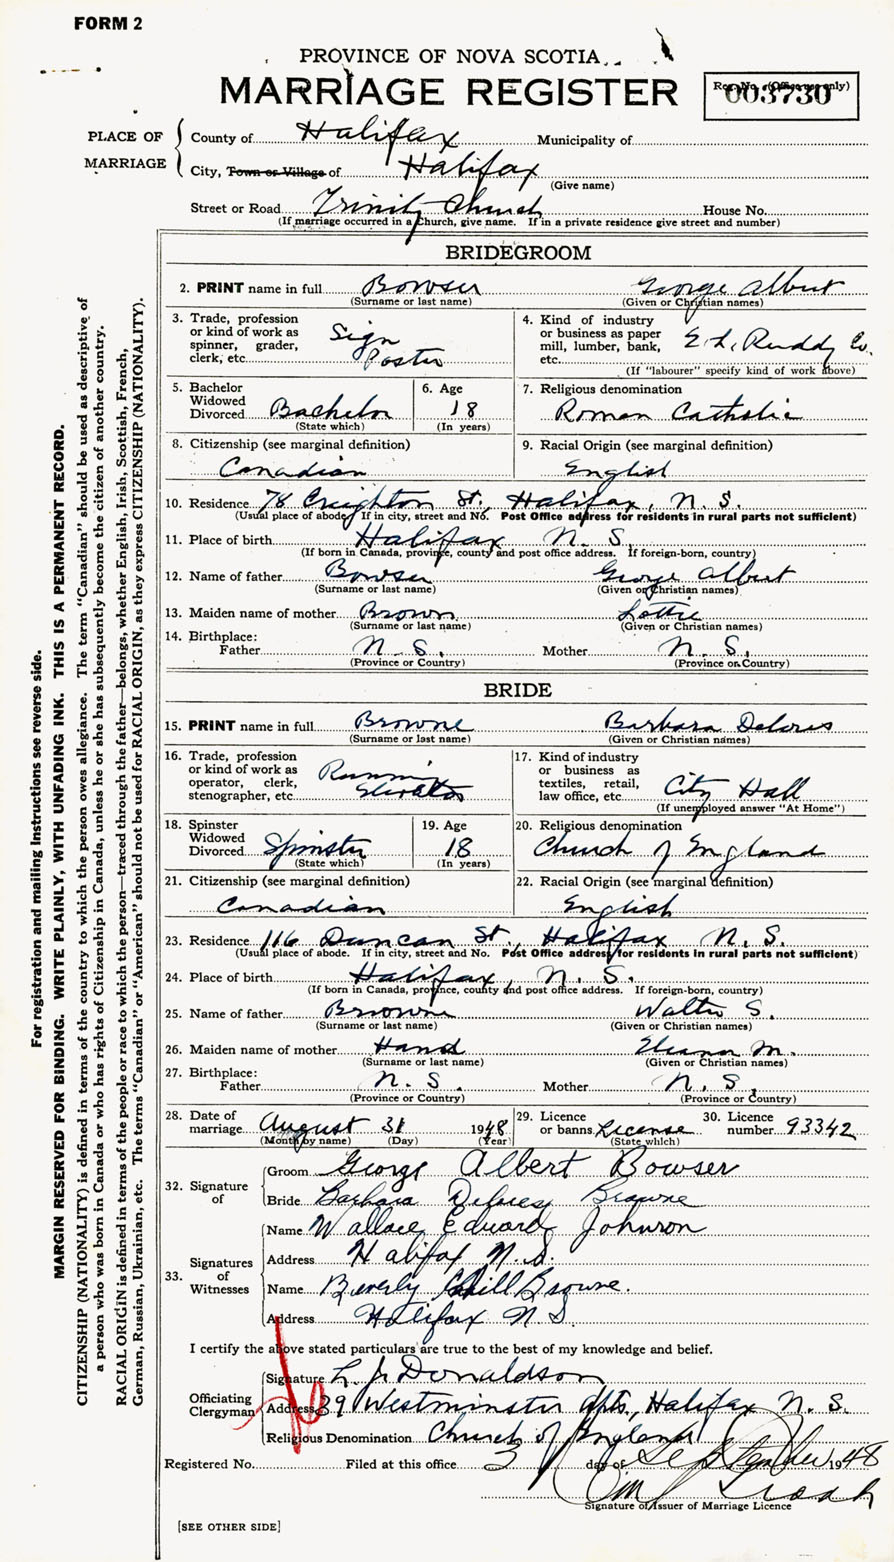 FORM 2
PROVINCE OF NOVA SCOTIA
MARRIAGE REGISTER
Reg. No. (Office use only)
003730
PLACE OF MARRIAGE
County of Halifax Municipality of
City, Town or Village of Halifax
(Give name)
Street or Road Trinity Church House No.
(If marriage occurred in a Church, give name. If in a private residence give street and number)
BRIDEGROOM
2. PRINT name in full Bowser George Albert
(Surname or last name) (Given or Christian names)
3. Trade, profession or kind of work as spinner, grader, clerk, etc. Sign Poster
4. Kind of industry or business as paper mill, lumber, bank, etc. E. L. Ruddy Co.
(If "labourer" specify kind of work above)
5. Bachelor Widowed Divorced Bachelor
(State which)
6. Age 18
(In years)
7. Religious denomination
Roman Catholic
8. Citizenship (see marginal definition)
Canadian
9. Racial Origin (see marginal definition)
English
10. Residence 78 Creighton St., Halifax, N. S.
(Usual place of abode. If in city, street and No. Post Office address for residents in rural parts not sufficient)
11. Place of birth Halifax N. S.
(If born in Canada, province, county and post office address. If foreign-born, country)
12. Name of father Bowser George Albert
(Surname or last name) (Given or Christian names)
13. Maiden name of mother Brown Lottie
(Surname or last name) (Given or Christian names)
14. Birthplace:
Father N. S. Mother N. S.
(Province or Country) (Province or Country)
BRIDE
15. PRINT name in full Browne Barbara Delores
(Surname or last name) (Given or Christian names)
16. Trade, profession or kind of work as operator, clerk, stenographer, etc. Running Elevator
17. Kind of industry or business as textiles, retail, law office, etc. City Hall
(If unemployed answer "At Home")
18. Spinster Widowed Divorced Spinster
(State which)
19. Age 18
(In years)
20. Religious denomination
Church of England
21. Citizenship (see marginal definition)
Canadian
22. Racial Origin (see marginal definition)
English
23. Residence 116 Duncan St., Halifax N. S.
(Usual place of abode. If in city, street and No. Post Office address for residents in rural parts not sufficient)
24. Place of birth Halifax, N. S.
(If born in Canada, province, county and post office address. If foreign-born, country)
25. Name of father Browne Walter S.
(Surname or last name) (Given or Christian names)
26. Maiden name of mother Hand Eleanor M.
(Surname or last name) (Given or Christian names)
27. Birthplace:
Father N. S. Mother N. S.
(Province or Country) (Province or Country)
28. Date of marriage August 31 1948
(Month by name) (Day) (Year)
29. Licence or banns License
(State which)
30. Licence number 93342
32. Signature of
Groom George Albert Bowser
Bride Barbara Delores Browne
33. Signatures of Witnesses
Name Wallace Edward Johnson
Address Halifax N.S.
Name Beverly Browne.
Address Halifax N S
I certify the above stated particulars are true to the best of my knowledge and belief.
Officiating Clergyman
Signature Donaldson
Address 39 Westminster Apts., Halifax N. S.
Religious Denomination Church of England
Registered No. Filed at this office 3 day of September 1948
Signature of Issuer of Marriage Licence
[SEE OTHER SIDE]
For registration and mailing instructions see reverse side.
MARGIN RESERVED FOR BINDING. WRITE PLAINLY, WITH UNFADING INK. THIS IS A PERMANENT RECORD.
CITIZENSHIP (NATIONALITY) is defined in terms of the country to which the person owes allegiance. The term "Canadian" should be used as descriptive of
a person who was born in Canada or who has rights of Citizenship in Canada, unless he or she has subsequently become the citizen of another country.
RACIAL ORIGIN is defined in terms of the people or race to which the person—traced through the father—belongs, whether English, Irish, Scottish, French,
German, Russian, Ukrainian, etc. The terms "Canadian" or "American" should not be used for RACIAL ORIGIN, as they express CITIZENSHIP (NATIONALITY).